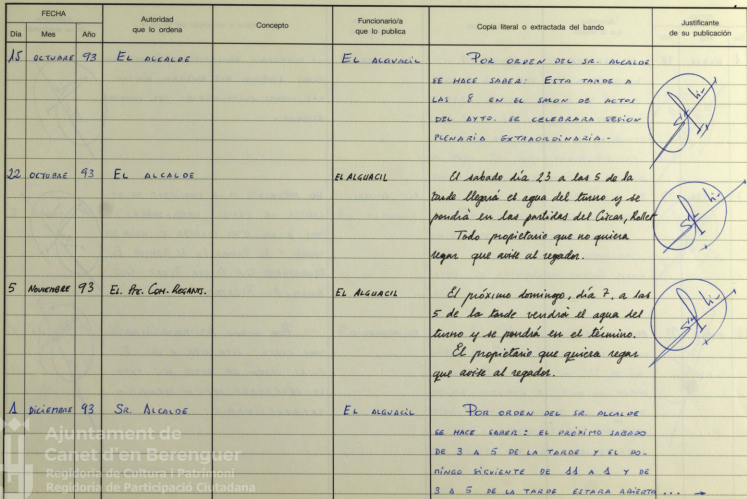 FECHA
Autoridad que lo ordena
Concepto
Funcionario/a que lo publica
Copia literal o extractada del bando
Justificante de su publicación
Día Mes Año
15 OCTUBRE 93 EL ALCALDE EL ALGUACIL POR ORDEN DEL SR. ALCALDE
SE HACE SABER: ESTA TARDE A
LAS 8 EN EL SALON DE ACTOS
DEL AYTO. SE CELEBRARA SESION
PLENARIA EXTRAORDINARIA.-
22 OCTUBRE 93 EL ALCALDE EL ALGUACIL El sabado día 23 a las 5 de la
tarde llegará el agua del turno y se
pondrá en las partidas del Circar, Rollet
Todo propietario que no quiera
regar que avise al regador.
5 NOVIEMBRE 93 EL PTE. COM. REGANTS. EL ALGUACIL El próximo domingo, día 7, a las
5 de la tarde vendrá el agua del
turno y se pondrá en el término.
El propietario que quiera regar
que avise al regador.
1 DICIEMBRE 93 SR. ALCALDE EL ALGUACIL POR ORDEN DEL SR. ALCALDE
SE HACE SABER: EL PRÓXIMO SABADO
DE 3 A 5 DE LA TARDE Y EL DO-
MINGO SIGUIENTE DE 11 A 1 Y DE
3 A 5 DE LA TARDE ESTARA ABIERTA ... →
Ajuntament de
Canet d'en Berenguer
Regidoria de Cultura i Patrimoni
Regidoria de Participació Ciutadana